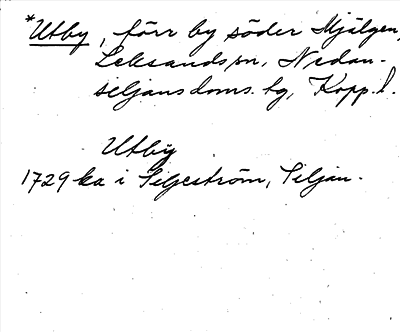 *Utby, förr by söder Mjälgen,
Leksands sn, Nedan-
siljans doms. tg, Kopp. l.
Utby
1729 ka i Siljeström, Siljan.